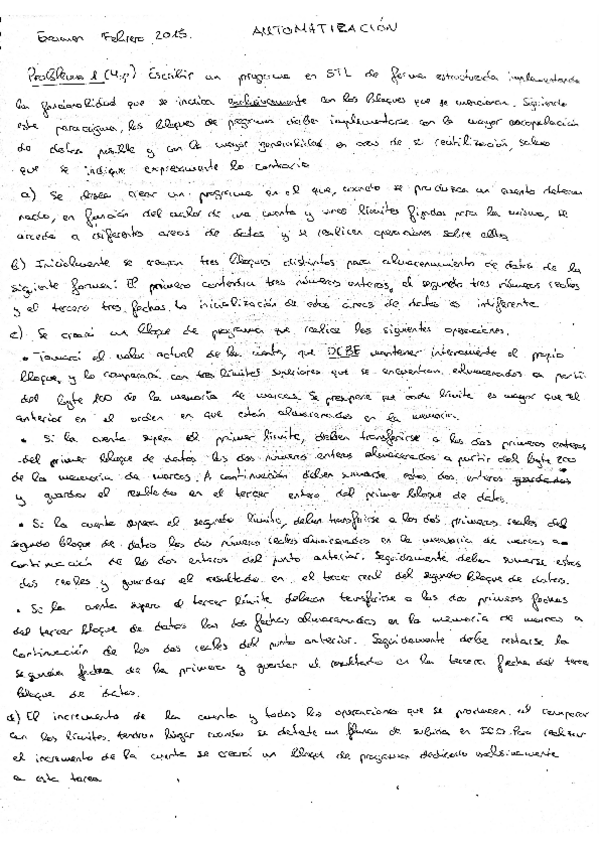 Examen Febrero 2015. AUTOMATIZACIÓN
Problema 1 (4p) Escribir un programa en STL de forma estructurada implementando
la funcionalidad que se indica exclusivamente con los bloques que se mencionan. Siguiendo
este paradigma, los bloques de programa deben implementarse con la mayor encapsulación
de datos posible y con la mayor generalidad en aras de su reutilización, salvo
que se indique expresamente lo contrario
a) Se desea crear un programa en el que, cuando se produzca un evento determi
nado, en función del valor de una cuenta y unos límites fijados para la misma, se
acceda a diferentes areas de datos y se realicen operaciones sobre ellas
b) Inicialmente se crearan tres bloques distintos para almacenamiento de datos de la
siguiente forma: El primero contendra tres números enteros, el segundo tres números reales
y el tercero tres fechas. La inicialización de estas áreas de datos es indiferente
c) Se creará un bloque de programa que realice las siguientes operaciones.
• Tomará el valor actual de la cuenta, que DEBE mantener internamente el propio
bloque, y lo comparará con tres límites superiores que se encuentran almacenados a partir
del byte 100 de la memoria de marcas. Se presupone que cada límite es mayor que el
anterior en el orden en que están almacenados en la memoria.
• Si la cuenta supera el primer límite, deben transferirse a los dos primeros enteros
del primer bloque de datos los dos números enteros almacenados a partir del byte 200
de la memoria de marcas. A continuación deben sumarse estos dos enteros guardando
y guardar el resultado en el tercer entero del primer bloque de datos.
• Si la cuenta supera el segundo límite, deben transferirse a los dos primeros reales del
segundo bloque de datos los dos números reales almacenados en la memoria de marcas a
continuación de los dos enteros del punto anterior. Seguidamente deben sumarse estos
dos reales y guardar el resultado en el tercer real del segundo bloque de datos.
• Si la cuenta supera el tercer límite deberán transferirse a las dos primeras fechas
del tercer bloque de datos las dos fechas almacenadas en la memoria de marcas a
continuación de los dos reales del punto anterior. Seguidamente debe restarse la
segunda fecha de la primera y guardar el resultado en la tercera fecha del tercer
bloque de datos.
d) El incremento de la cuenta y todas las operaciones que se producen al comparar
con los límites tendrán lugar cuando se detecte un flanco de subida en I0.0. Para realizar
el incremento de la cuenta se creará un bloque de programa dedicado exclusivamente
a esta tarea